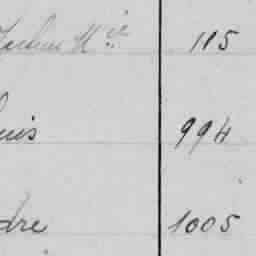 Mie 115
uis 994
dre 1005